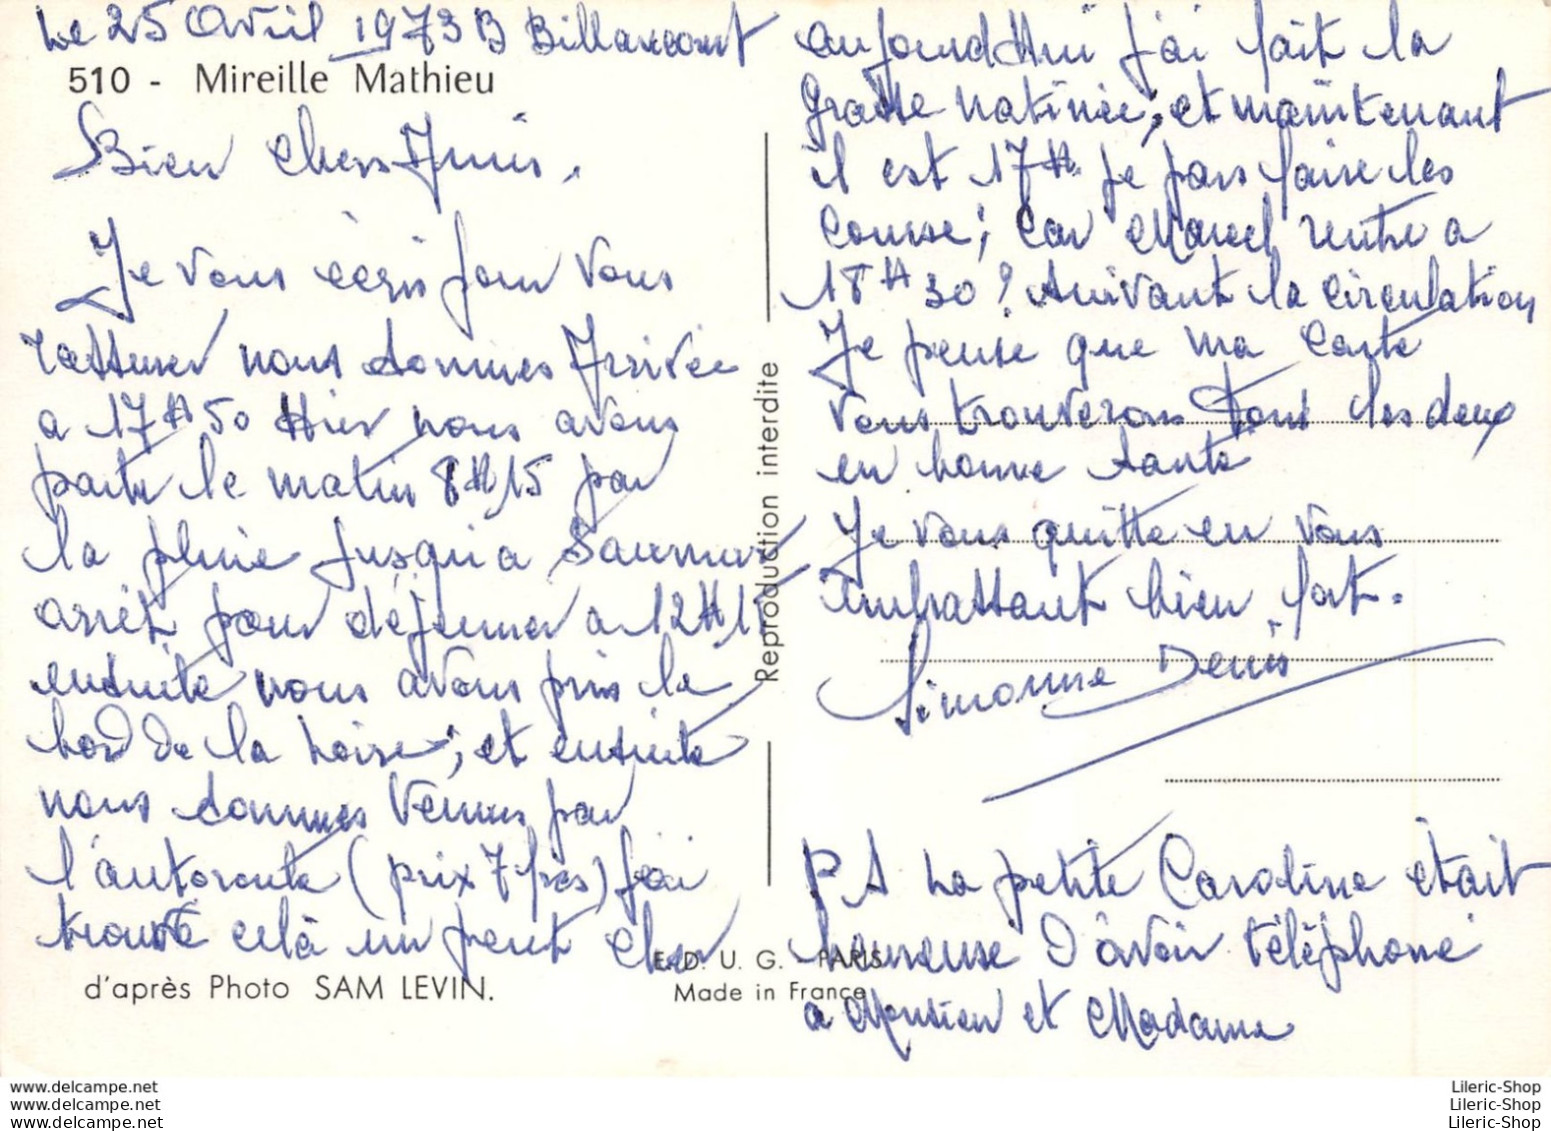 Le 25 Avril 1973 B Billancourt
510 - Mireille Mathieu
Bien Chers Amis,
Je vous écris pour vous
rassurer nous sommes Arrivée
a 17H50 Hier nous avons
partu le matin 8H15 par
la pluie jusqu'a Saumur
arrêt pour déjeuner a 12H15
ensuite nous avons pris le
bord de la Loire, et ensuite
nous sommes venus par
l'autoroute (prix 7 frcs) j'ai
trouvé celà un peut cher
d'après Photo SAM LEVIN.
Reproduction interdite
E. D. U. G. PARIS
Made in France
aujourd'Hui j'ai fait la
grasse matinée, et maintenant
il est 17H. je pars faire les
course, car Marcel rentre a
18H30? Suivant la circulation
Je pense que ma carte
vous trouverons tous les deux
en bonne santé
Je vous quitte en vous
embrassant bien fort.
Simonne Denis
PS La petite Caroline était
heureuse d'avoir téléphoné
a Monsieur et Madame
www.delcampe.net
www.delcampe.net
www.delcampe.net
Lileric-Shop
Lileric-Shop
Lileric-Shop